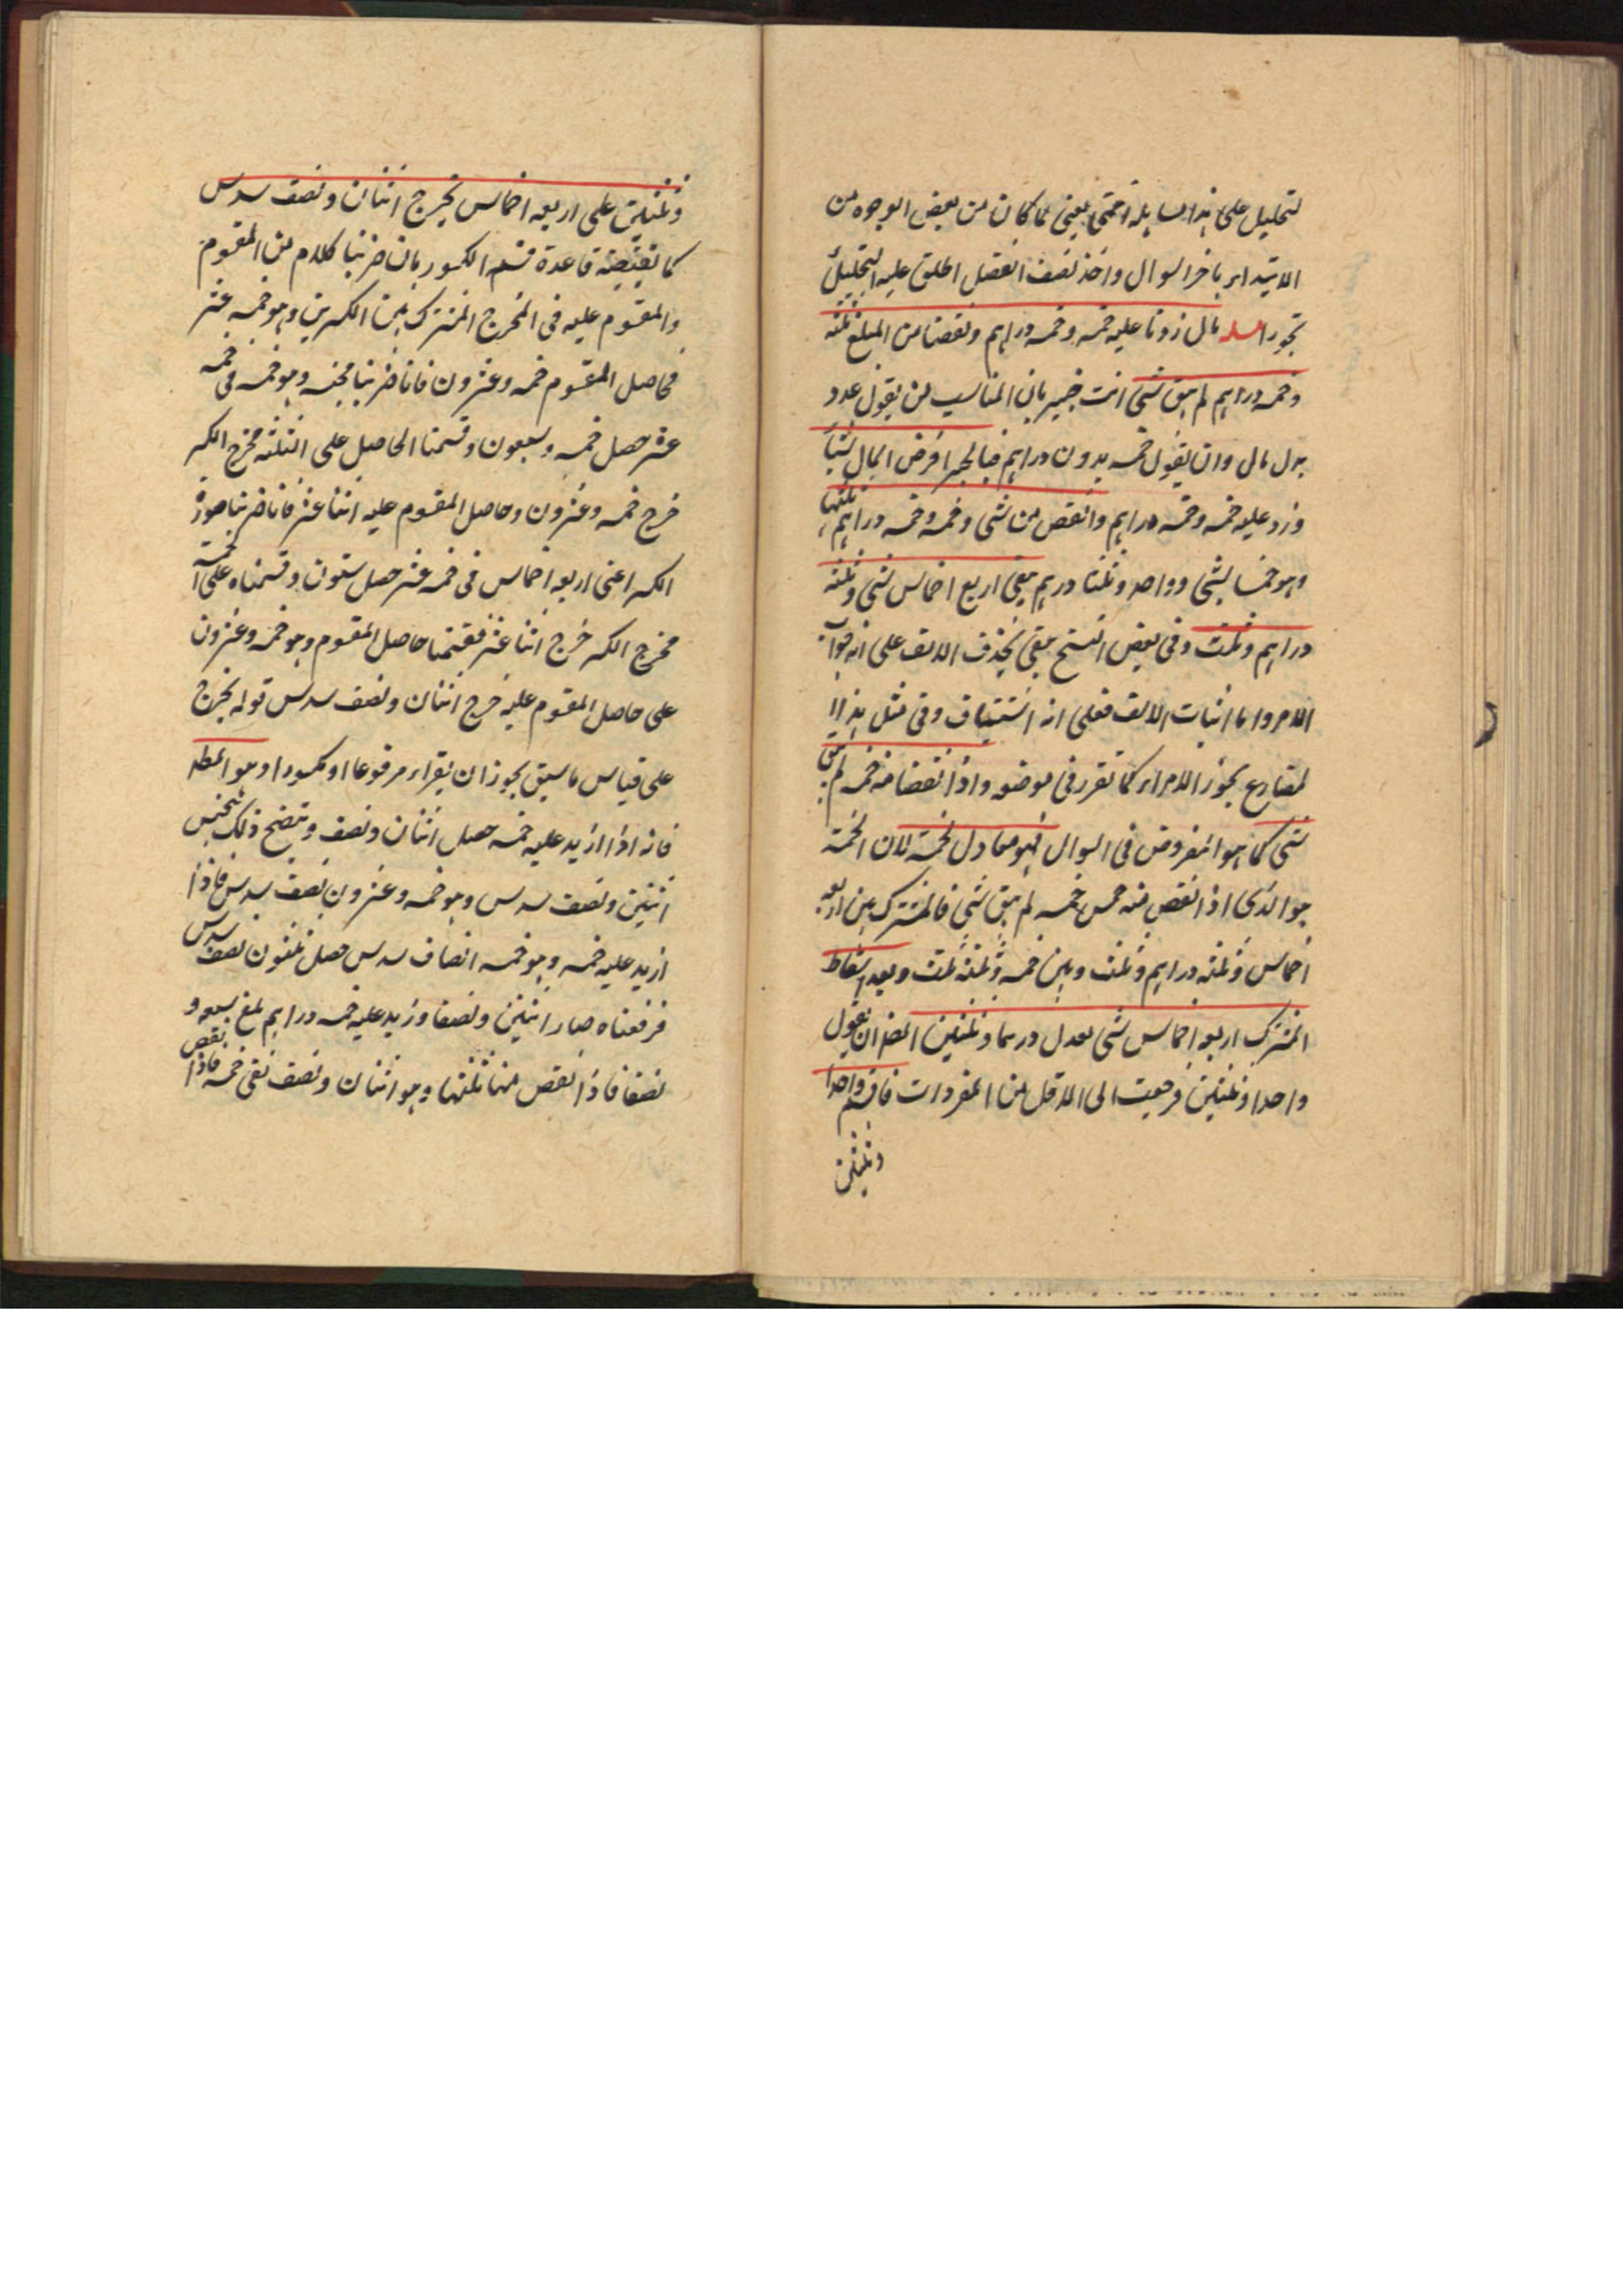 لتحليل على هذا المسايلة احتمى يعنى لما كان من بعض الوجوه من
الابتداء باخر السوال واخذ نصف الفضل اطلق عليه التحليل
تجوزا مسله مال زدنا عليه خمسه وخمسه دراهم ونقصنا من المبلغ ثلثه
وخمسه دراهم لم يبق شئ انت خبير بان المناسب ان يقول عدد
بدل مال وان يقول خمسه بدون دراهم فبالجبر افرض المال شيئا
وزد عليه خمسه وخمسه دراهم وانقص من شئ وخمسه وخمسه دراهم ثلثها
وهو خمسا شئ وواحد وثلثا درهم يبقى اربع اخماس شئ وثلثه
دراهم وثلث وفى بعض النسخ يبق بحذف الالف على انه جواب
الامر واما اثبات الالف فعلى انه استيناف وفى مثل هذا ا
لمضارع يجوز الامران كما تقرر فى موضعه واذا نقصنا منه خمسه لم يبق
شئ كما هو المفروض فى السوال فهو معادل لخمسة لان الخمسة
هو الذى اذا نقص منه خمسه لم يبق شئ فالمشترك بين اربعه
اخماس وثلثه دراهم وثلث وبين خمسه وثلثه ثلث وبعد اسقاط
المشترك اربعه اخماس شئ يعدل درهما وثلثين المضر ان يقول
واحدا وثلثين فرجعت الى الاول من المفردات فاقسم واحدا
وثلثين
وثلثين على اربعه اخماس يخرج اثنان ونصف سدس
كما تقتضيه قاعدة قسم الكسور بان ضربنا كلا من المقسوم
والمقسوم عليه فى المخرج المشترك بين الكسرين وهو خمسه عشر
فحاصل المقسوم خمسه وعشرون فانا ضربنا مجنسه وهو خمسه فى خمسه
عشر حصل خمسه وسبعون وقسمنا الحاصل على الثلثه مخرج الكسر
خرج خمسه وعشرون وحاصل المقسوم عليه اثنا عشر فانا ضربنا صورة
الكسر اعنى اربعه اخماس فى خمسه عشر حصل ستون وقسمناه على خمسه
مخرج الكسر خرج اثنا عشر فقسمنا حاصل المقسوم وهو خمسه وعشرون
على حاصل المقسوم عليه خرج اثنان ونصف سدس قوله يخرج
على قياس ما سبق يجوز ان يقراء مرفوعا او مكسورا وهو المطلـ
فانه اذا ازيد عليه خمسه حصل اثنان ونصف ويتضح ذلك بتجنيس
اثنين ونصف سدس وهو خمسه وعشرون نصف سدس فاذا
ازيد عليه خمسه وهو خمسه انصاف سدس حصل ثلثون نصف سدس
فرفعناه صار اثنين ونصفا وزيد عليه خمسه دراهم بلغ سبعه و
نصفا فاذا نقص منها ثلثها وهو اثنان ونصف بقى خمسه فاذا نقص